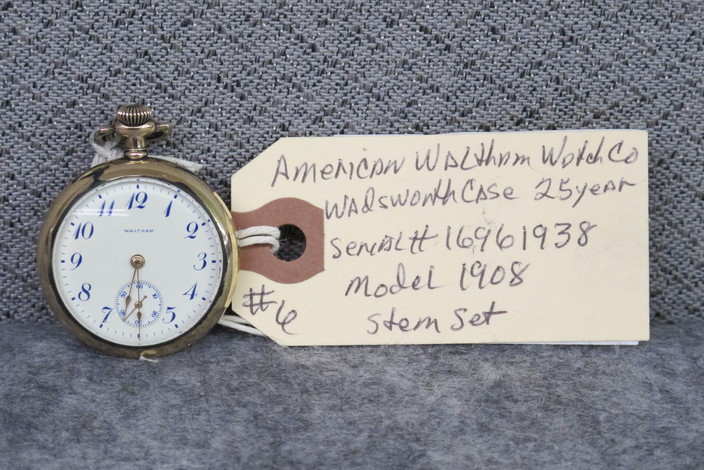 American Waltham Watch Co
Wadsworth Case 25 year
Serial # 16961938
Model 1908
Stem Set
#6
WALTHAM
12
1
2
3
4
5
7
8
9
10
11